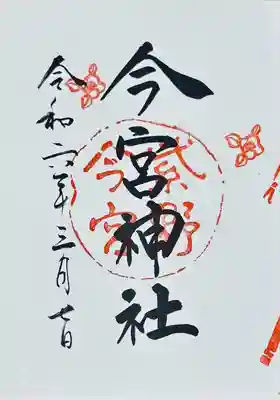 今宮神社
令和六年三月七日
紫野
今宮